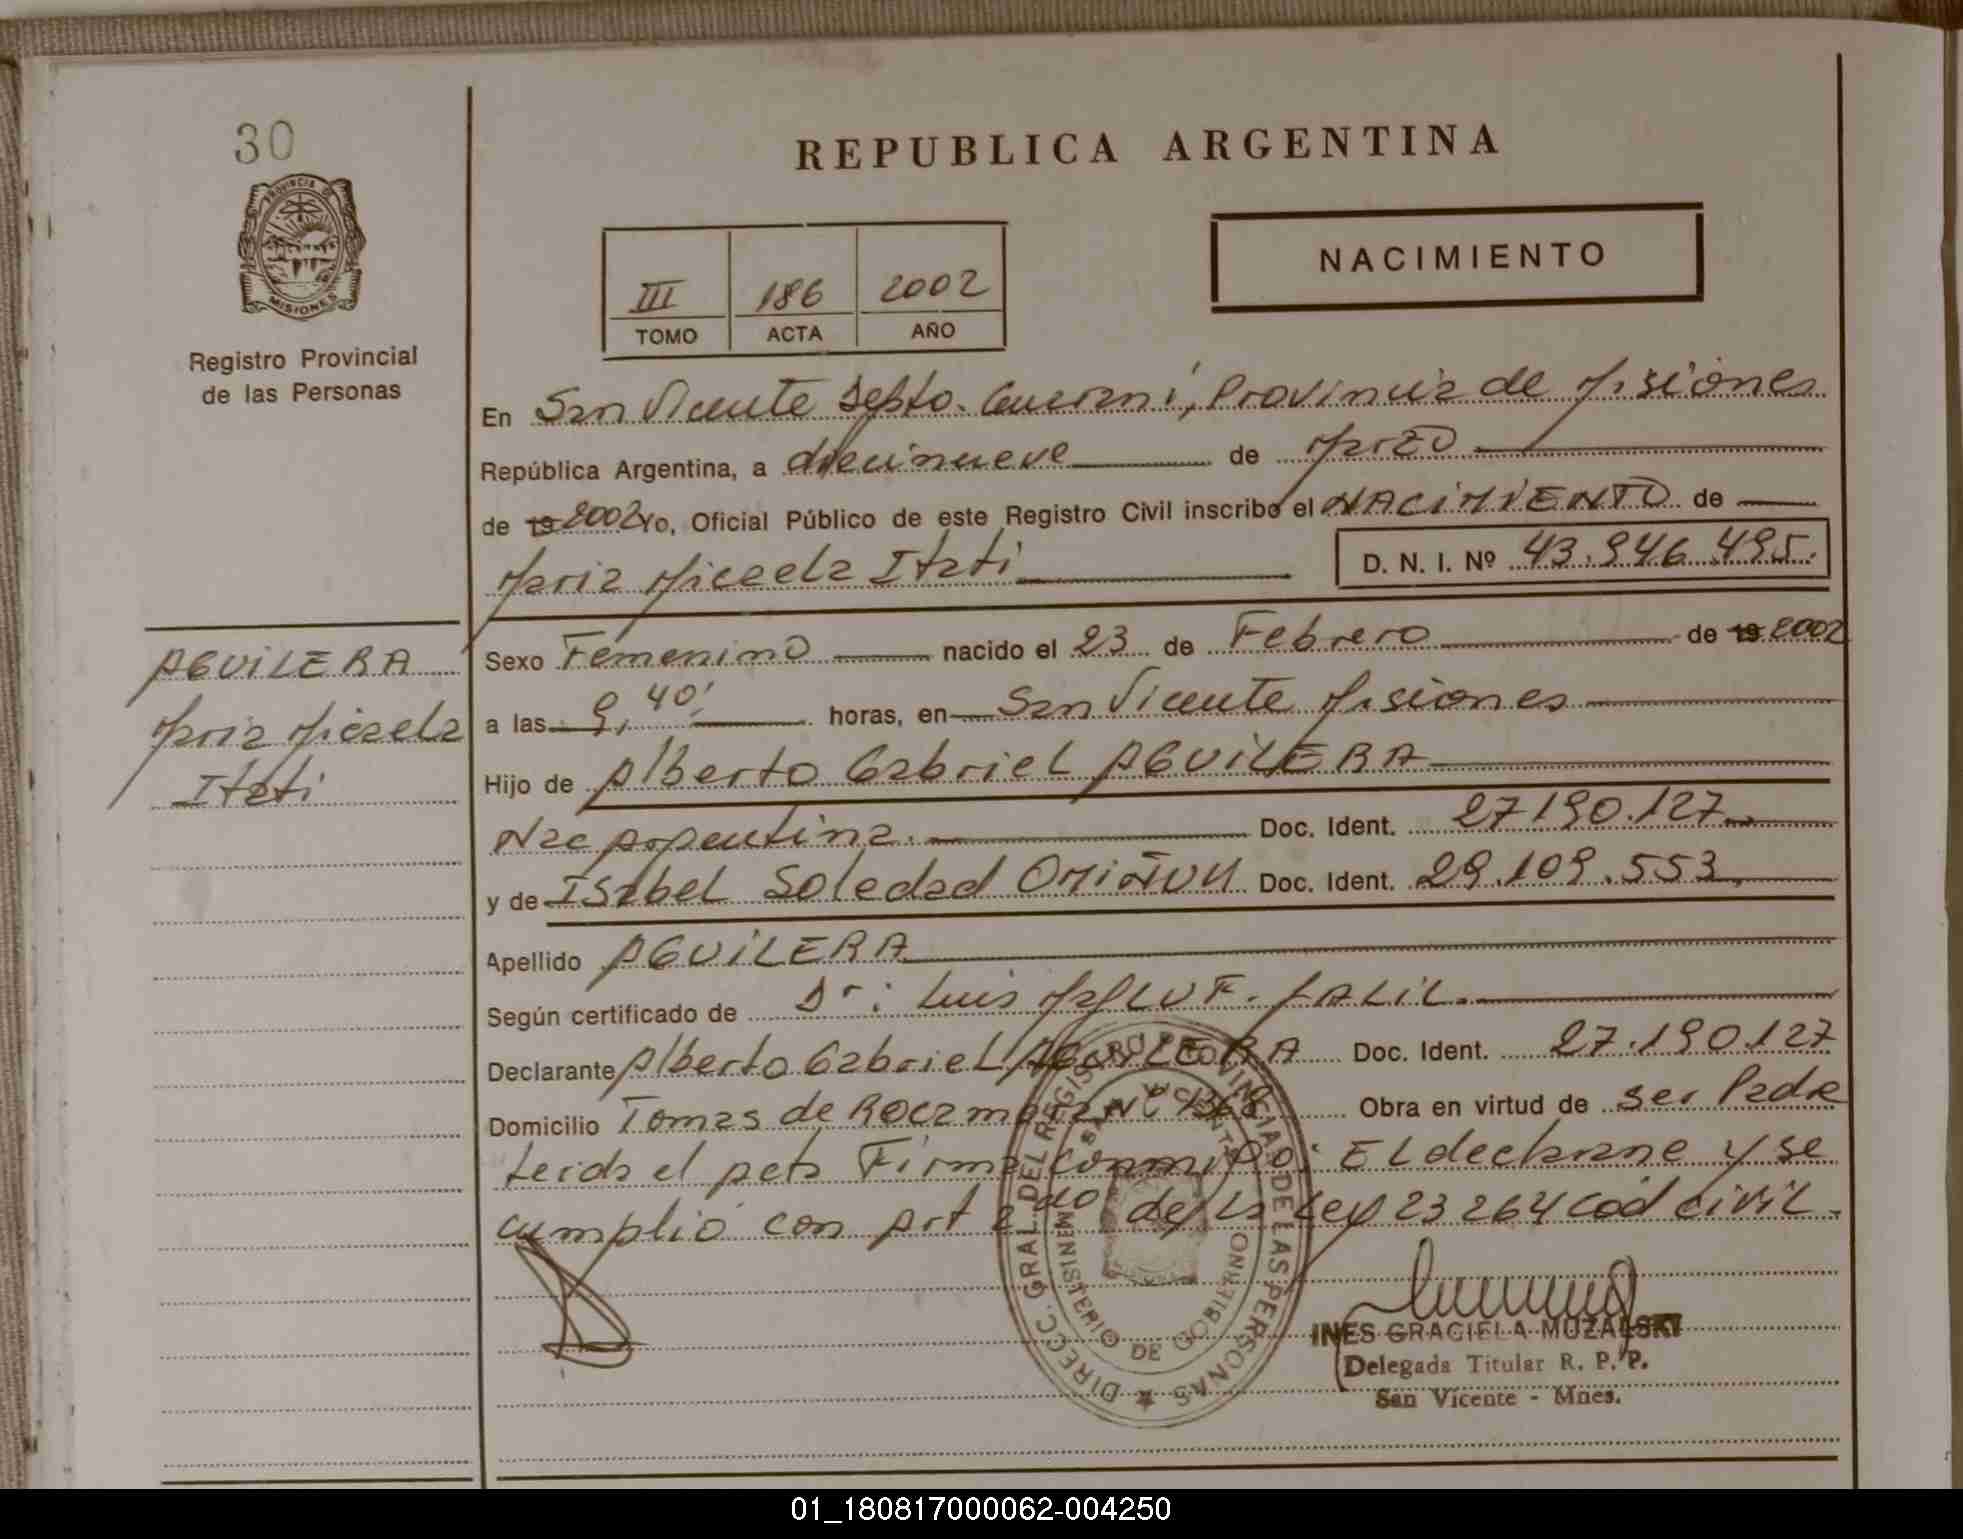 30
PROVINCIA DE
MISIONES
Registro Provincial
de las Personas
REPUBLICA ARGENTINA
NACIMIENTO
III 186 2002
TOMO ACTA AÑO
En San Vicente Depto. Guarani, Provincia de Misiones
República Argentina, a diecinueve de Marzo
de 19 2002 Yo, Oficial Público de este Registro Civil inscribo el NACIMIENTO de
Maria Micaela Itati D. N. I. Nº 43.946.495.
Sexo Femenino nacido el 23 de Febrero de 19 2002
a las 9,40' horas, en San Vicente Misiones
Hijo de Alberto Gabriel AGUILERA
Nac Argentina. Doc. Ident. 27190.127
y de ISabel Soledad OMiÑUK Doc. Ident. 29.109.553
Apellido AGUiLERA
Según certificado de Dr: Luis JALIL.
Declarante Alberto Gabriel AGUILERA Doc. Ident. 27.190.127
Domicilio Tomas de Rocamora Nº 1368 Obra en virtud de ser Padre
Leida el acta Firma conmigo: El declarane y se
cumplió con Art 2do de la Ley 23264 cod civil.
AGUILERA
Maria Micaela
Itati
DIRECC. GRAL DEL REGISTRO PROVINCIAL DE LAS PERSONAS
SAN VICENTE
MINISTERIO DE GOBIERNO
INES GRACIELA MUZALSKI
Delegada Titular R. P. P.
San Vicente - Mnes.
01_180817000062-004250